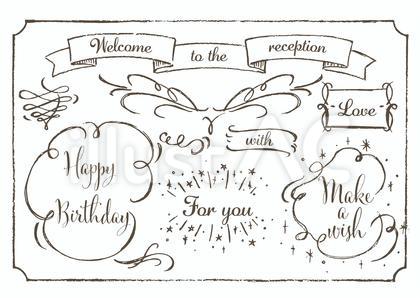 Welcome to the reception
Love
with
Happy
Birthday
For you
Make
a
wish
illustAC